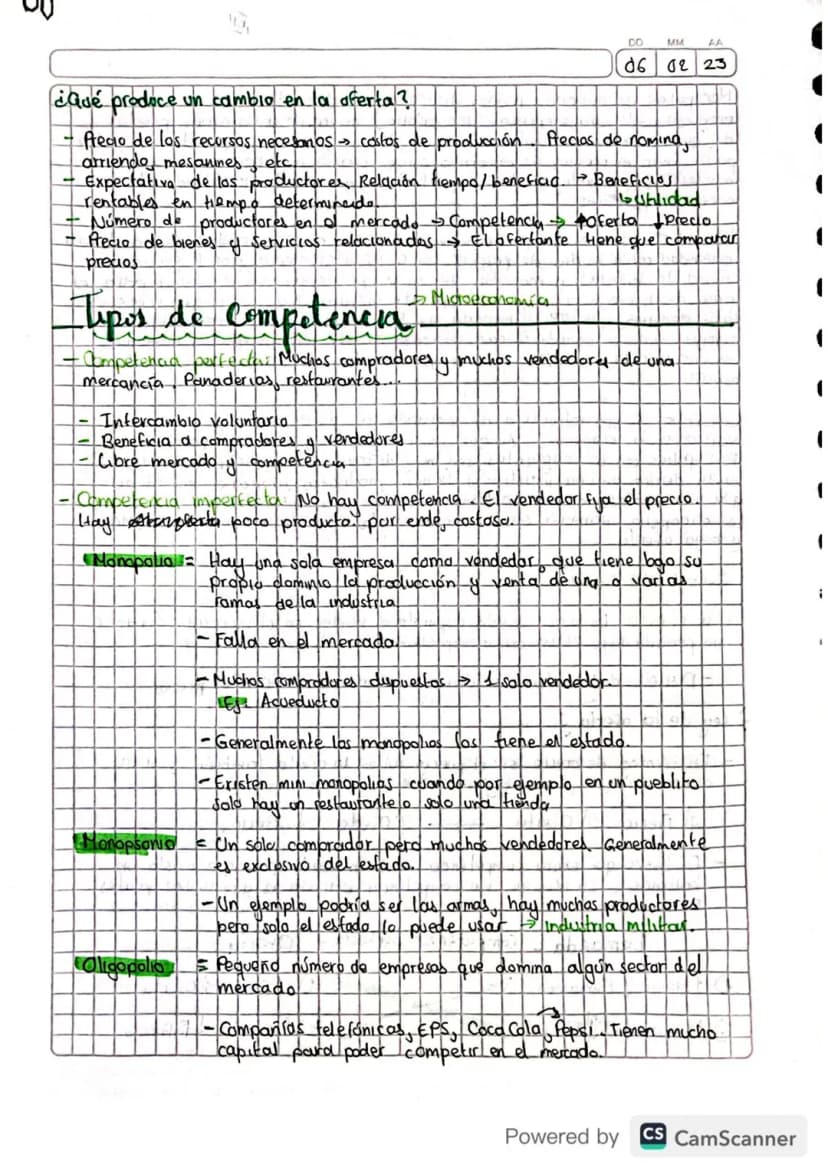 DD MM AA
06 02 23
¿Qué produce un cambio en la oferta?
- Precio de los recursos necesarios → costos de producción. Precios de nomina,
arriendo, mesanines, etc.
- Expectativa de los productores. Relación tiempo/beneficio. → Beneficios
rentables en tiempo determinado. ↳ Utilidad
- Número de productores en el mercado → Competencia → ↑Oferta ↓Precio
- Precio de bienes y servicios relacionados → El ofertante tiene que comparar
precios
Tipos de Competencia → Microeconomía
- Competencia perfecta: Muchos compradores y muchos vendedores de una
mercancía. Panaderias, restaurantes...
- Intercambio voluntario
- Beneficia a compradores y vendedores
- Libre mercado y competencia
- Competencia imperfecta: No hay competencia. El vendedor fija el precio.
Hay poco producto. por ende, costoso.
Monopolio = Hay una sola empresa como vendedor, que tiene bajo su
propio dominio la producción y venta de una o varias
ramas de la industria
- Falla en el mercado.
- Muchos compradores dispuestos → 1 solo vendedor.
Ej: Acueducto
- Generalmente los monopolios los tiene el estado.
- Existen mini monopolios cuando por ejemplo en un pueblito
solo hay un restaurante o solo una tienda
Monopsonio = Un solo comprador pero muchos vendedores. Generalmente
es exclusivo del estado.
- Un ejemplo podría ser las armas, hay muchos productores
pero solo el estado lo puede usar → industria militar.
Oligopolio = Pequeño número de empresas que domina algún sector del
mercado
- Compañías telefónicas, EPS, Coca Cola, Pepsi. Tienen mucho
capital para poder competir en el mercado.
Powered by CS CamScanner